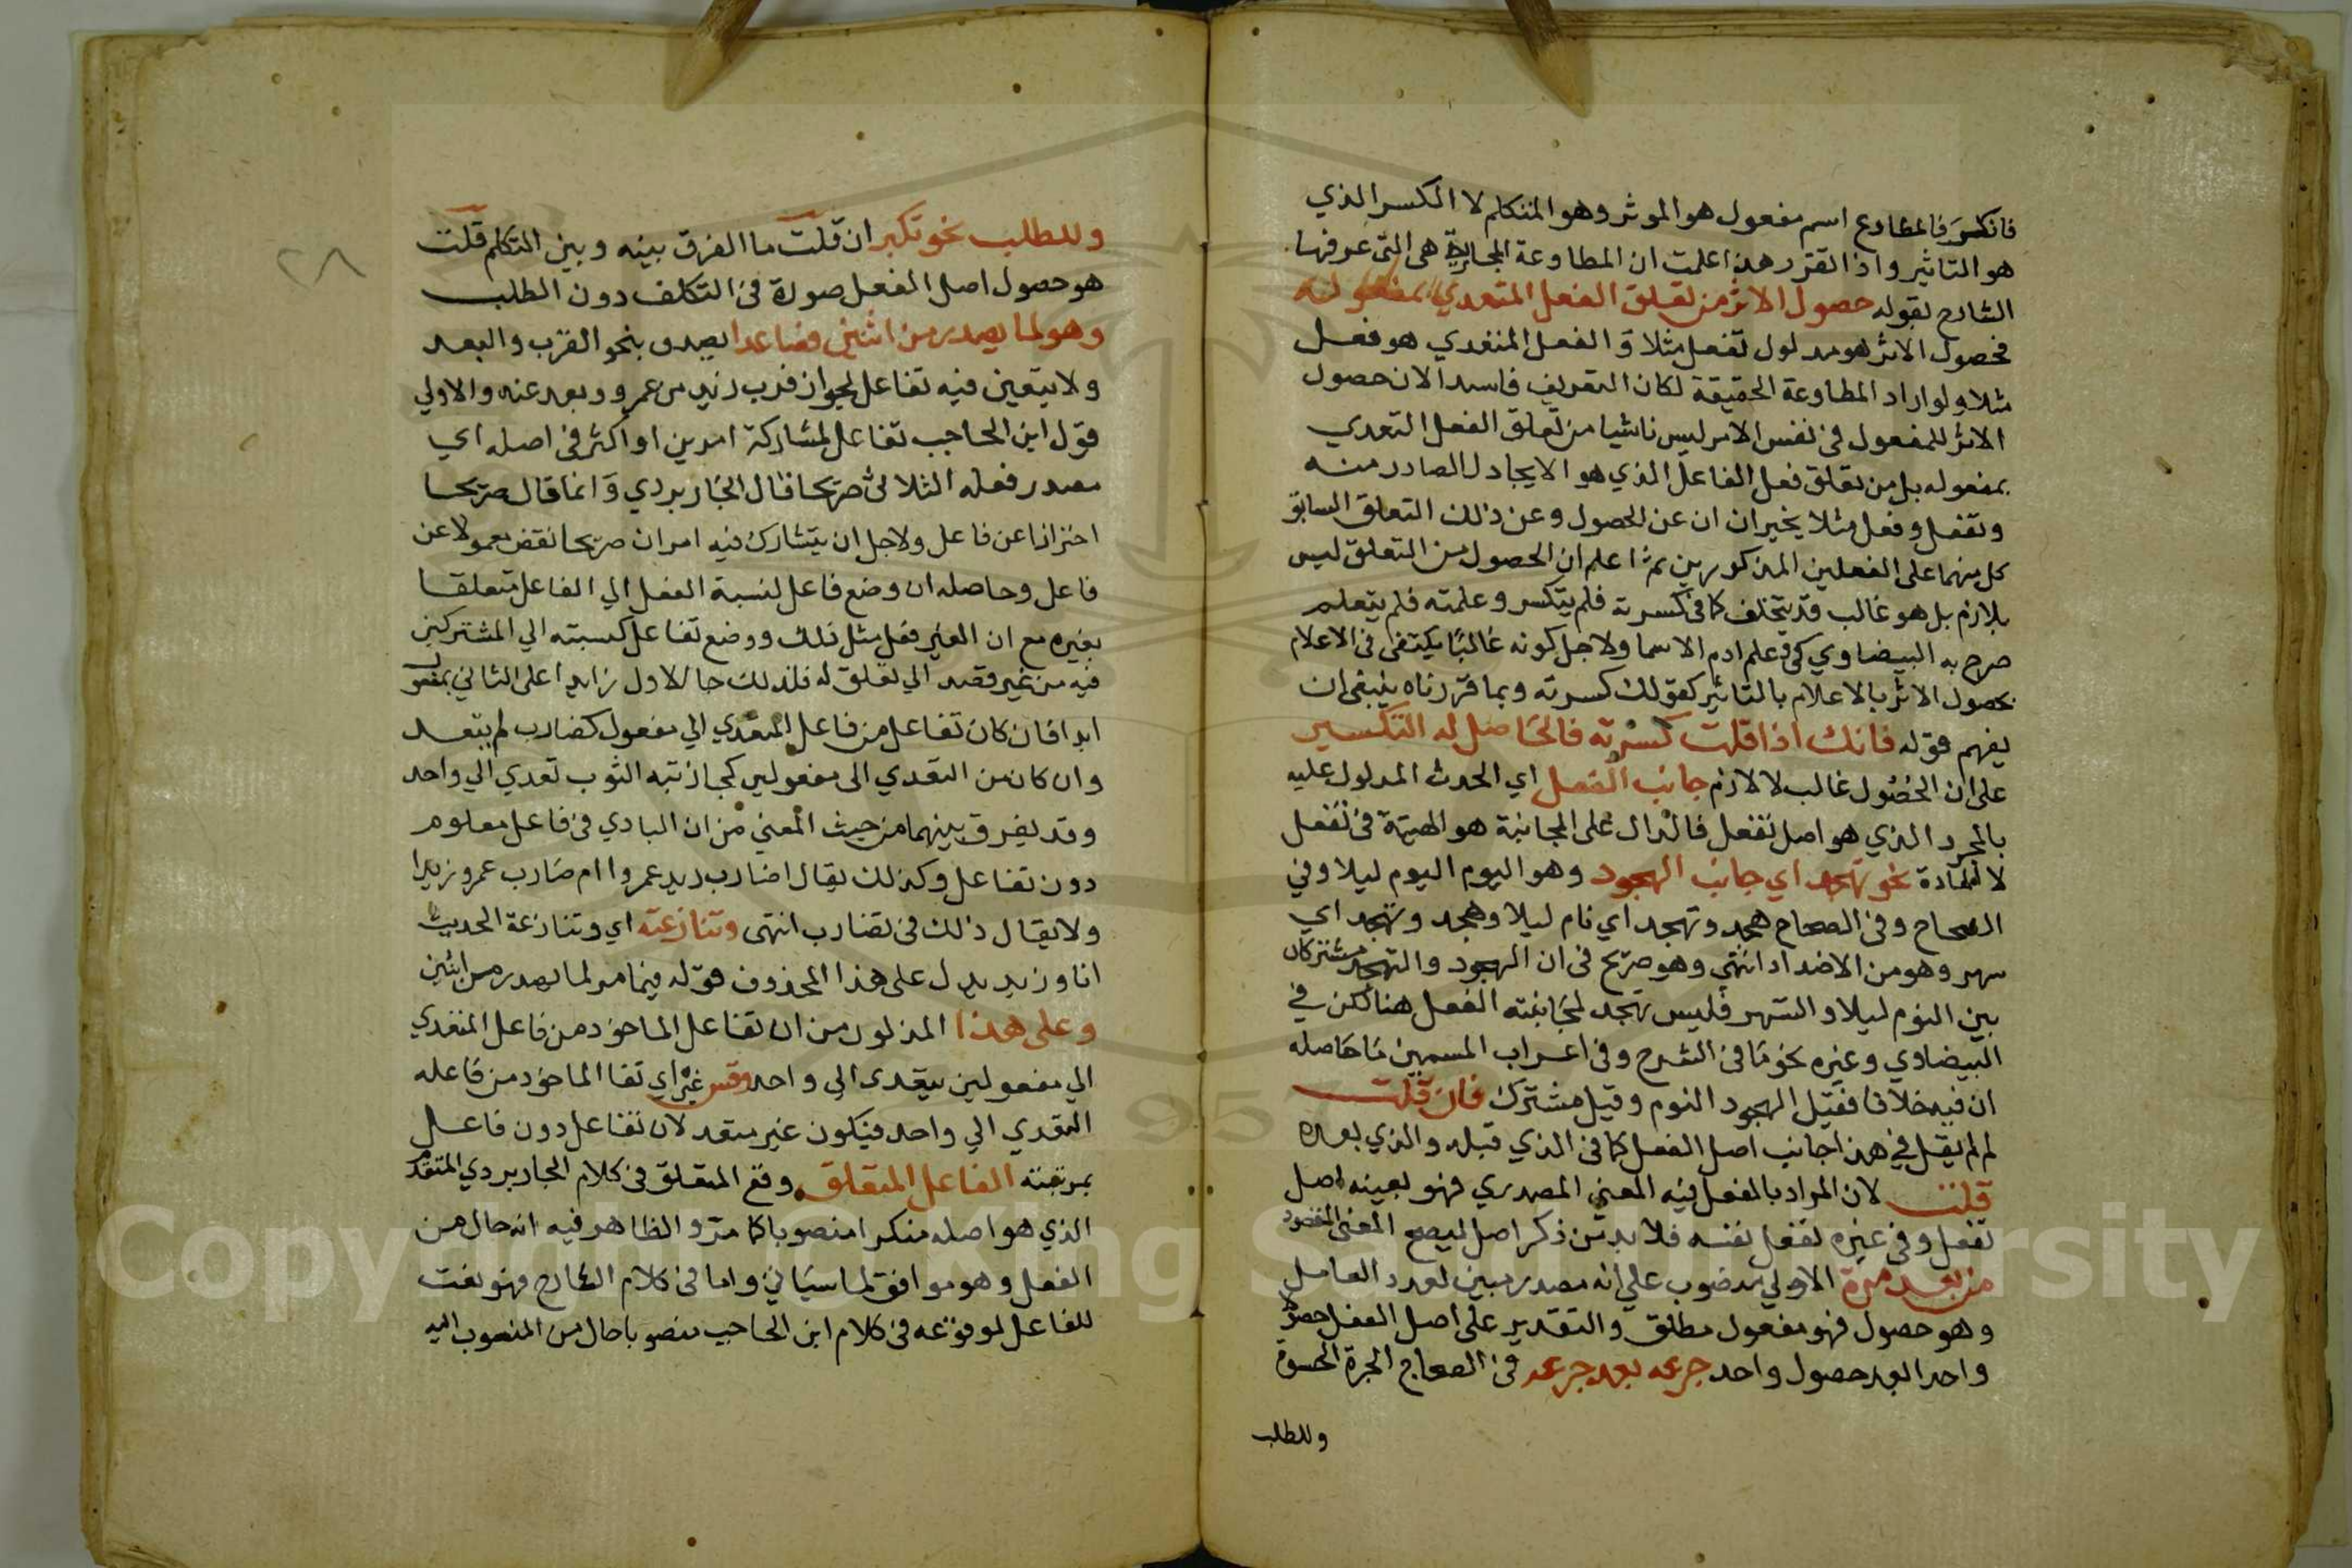 فانكسر فالمطاوع اسم مفعول هو الموثر وهو المتكلم لا الكسر الذي
هو التاثير واذا تقرر هذا علمت ان المطاوعة المجازية هى التى عرفها
الشارح بقوله حصول الاثر من تعلق الفعل المتعدي بمفعوله
فحصول الاثر هو مدلول تفعل مثلا و الفعل المتعدي هو فعل
مثلا ولو اراد المطاوعة الحقيقة لكان التعريف فاسدا لان حصول
الاثر للمفعول فى نفس الامر ليس ناشيا من تعلق الفعل المتعدي
بمفعوله بل من تعلق فعل الفاعل الذي هو الايجاد الصادر منه
وتفعل وفعل مثلا يخبران ان عن الحصول وعن ذلك التعلق السابق
كل منهما على الفعلين المذكورين ثم اعلم ان الحصول من التعلق ليس
بلازم بل هو غالب قد يتخلف كما فى كسرته فلم يتكسر وعلمته فلم يتعلم
صرح به البيضاوي فى وعلم ادم الاسما ولاجل كونه غالبًا يكتفى فى الاعلام
بحصول الاثر بالاعلام بالتاثير كقولك كسرته وبما قررناه ينبغى ان
يفهم قوله فانك اذا قلت كسرته فالحاصل له التكسير
على ان الحصول غالب لا لازم جانب الفعل اي الحدث المدلول عليه
بالمجرد الذي هو اصل تفعل فالدال على المجانبة هو الهيئة فى تفعل
لا المادة نحو تهجد اي جانب الهجود وهو اليوم اليوم ليلا وفي
الصحاح وفى الصحاح هجد وتهجد اي نام ليلا وهجد وتهجد اي
سهر وهو من الاضداد انتهى وهو صريح فى ان الهجود والتهجد مشتركان
بين النوم ليلا والسهر فليس تهجد لمجانبته الفعل هنا لكن في
البيضاوي وغيره نحو ما فى الشرح وفى اعراب السمين ما حاصله
ان فيه خلافا فقيل الهجود النوم وقيل مشترك فان قلت
لم لم يقل في هذا جانب اصل الفعل كما فى الذي قبله والذي بعده
قلت لان المراد بالفعل فيه المعنى المصدري فهو بعينه اصل
تفعل وفى غيره تفعل نفسه فلا بد من ذكر اصل ليصح المعنى المقصود
مرة بعد مرة الاولى منصوب على انه مصدر مبين لعدد العامل
وهو حصول فهو مفعول مطلق والتقدير على اصل الفعل حصولا
واحدا بعد حصول واحد جرعه بعد جرعه فى الصحاح الجرة الحسوة
وللطلب
وللطلب نحو تكبر ان قلت ما الفرق بينه وبين التكلم قلت
هو حصول اصل الفعل صورة فى التكلف دون الطلب
وهو لما يصدر من اثنين فصاعدا يصدق بنحو القرب والبعد
ولا يتعين فيه تفاعل لجواز قرب زيد من عمرو وبعد عنه والاولي
قول ابن الحاجب تفاعل لمشاركة امرين او اكثر فى اصله اي
مصدر فعله الثلاثى صريحا قال الجاربردي وانما قال صريحا
احترازا عن فاعل ولاجل ان يتشارك فيه امران صريحا نقض معمولا عن
فاعل وحاصله ان وضع فاعل لنسبة الفعل الي الفاعل متعلقا
بغيره مع ان الغير فعل مثل ذلك ووضع تفاعل لنسبته الي المشتركين
فيه من غير قصد الي تعلق له فلذلك جا الاول زايدا على الثاني بمفعول
ابدا فان كان تفاعل من فاعل المتعدي الي مفعول كضارب لم يتعد
وان كان من المتعدي الى مفعولين كجاذبته الثوب تعدي الي واحد
وقد يفرق بينهما من حيث المعني من ان البادي فى فاعل معلوم
دون تفاعل وكذلك يقال اضارب زيد عمروا ام ضارب عمرو زيدا
ولا يقال ذلك فى تضارب انتهى وتنازعته اي وتنازعة الحديث
انا وزيد يدل على هذا المحذوف قوله فيما مر لما يصدر من اثنين
وعلى هذا المذلور من ان تفاعل الماخوذ من فاعل المتعدي
الي مفعولين يتعدى الى واحد وقس غير اي تفا الماخوذ من فاعله
المتعدي الي واحد فيكون غير متعد لان تفاعل دون فاعل
بمرتبته الفاعل المتعلق وقع المتعلق فى كلام الجاربردي المتقدم
الذي هو اصله منكرا منصوبا كما مر والظاهر فيه انه حال من
الفعل وهو موافق لما سياتي واما فى كلام الشارح فهو نعت
للفاعل لموقوعه فى كلام ابن الحاجب منصوبا حال من المنصوب اليه
٢٨
Copyright © King Saud University
1957